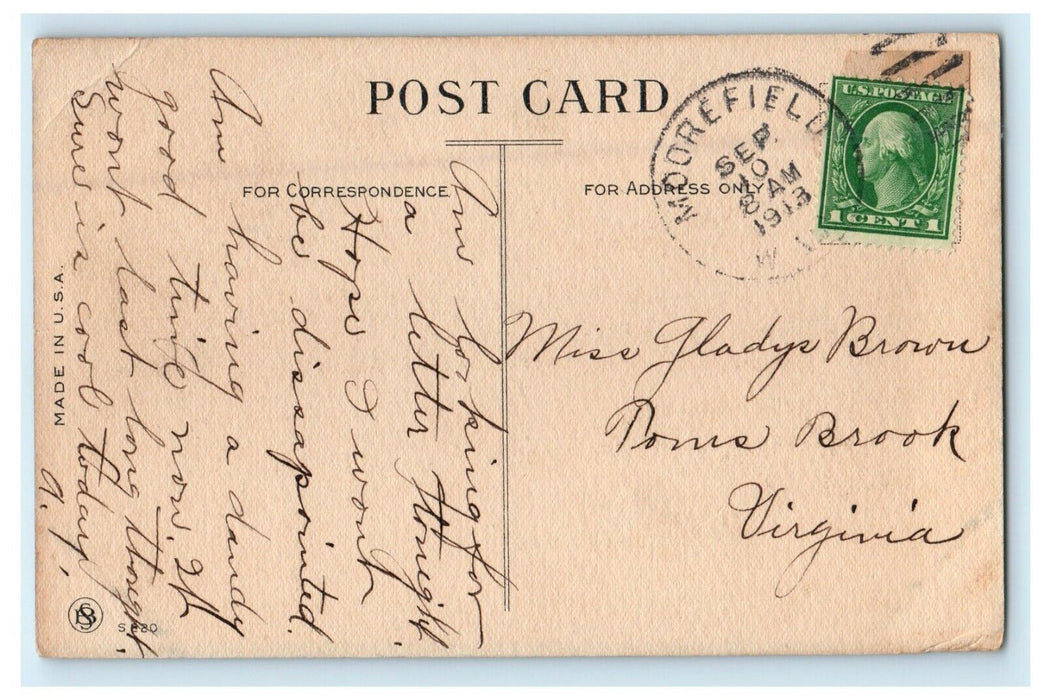 POST CARD
FOR CORRESPONDENCE
FOR ADDRESS ONLY
MOOREFIELD
SEP.
10
8 AM
1913
W. VA.
U.S. POSTAGE
1 CENT 1
Miss Gladys Brown
Toms Brook
Virginia
Am looking for
a letter tonight.
Hope I wont
be dissapointed.
Am having a dandy
good time now. It
wont last long though.
Sure is cool today.
MADE IN U.S.A.